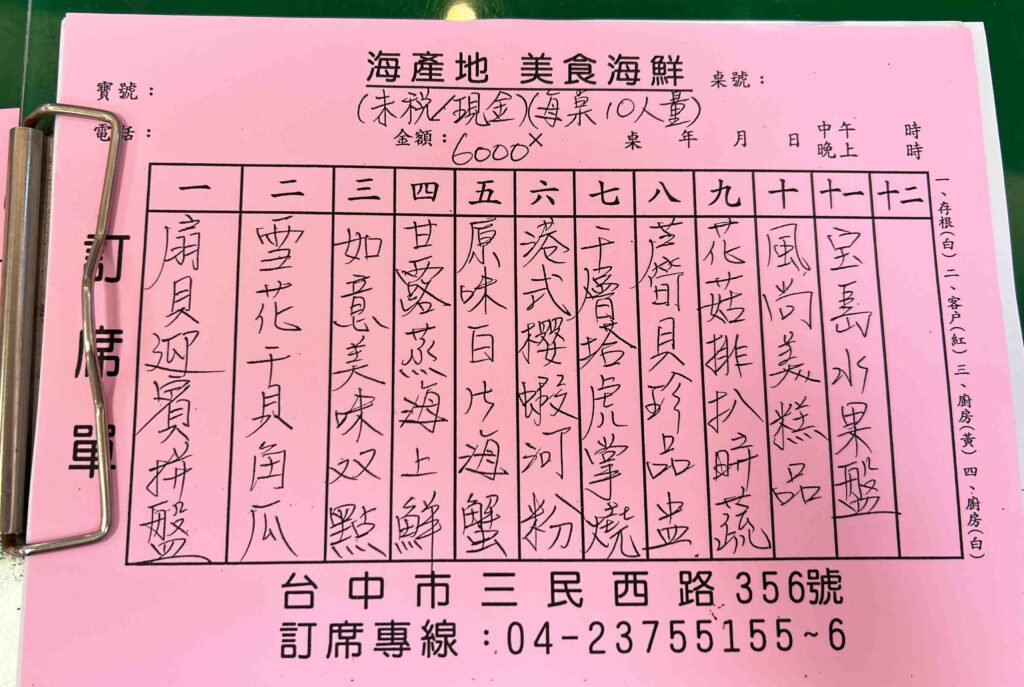 海產地 美食海鮮
寶號：
桌號：
(未税/現金)(每桌10人量)
電話：
金額：6000x
桌 年 月 日 中午 時
晚上 時
訂席單
一 二 三 四 五 六 七 八 九 十 十一 十二
扇貝迎賓拼盤
雪花干貝角瓜
如意美味双點
甘露蒸海上鮮
原味白片海蟹
港式櫻蝦河粉
干層塔虎掌燒
蘆筍貝珍品盅
花菇排扒時蔬
風尚美糕品
宝島水果盤
一、存根(白) 二、客户(紅) 三、廚房(黃) 四、廚房(白)
台中市三民西路356號
訂席專線：04-23755155~6